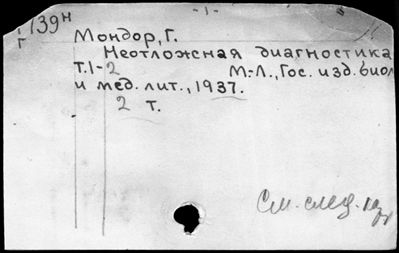 - 1 -
139н
Г
Мондор, Г.
Неотложная диагностика
т.1-2 М.-Л., Гос. изд. биол
и мед. лит., 1937.
2 т.
См. след.